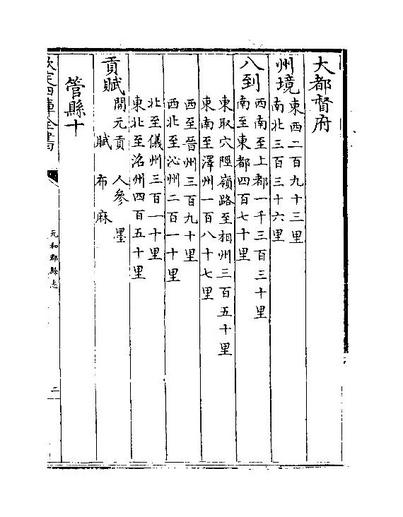 大都督府
州境
東西二百九十三里
南北三百三十六里
八到
西南至上都一千三百三十里
南至東都四百七十里
東取穴陘嶺路至相州三百五十里
東南至澤州一百八十七里
西至晉州三百九十里
西北至沁州二百一十里
北至儀州三百一十里
東北至洺州四百五十里
貢賦
開元貢 人參 墨
賦 布 麻
管縣十
欽定四庫全書
元和郡縣志
二